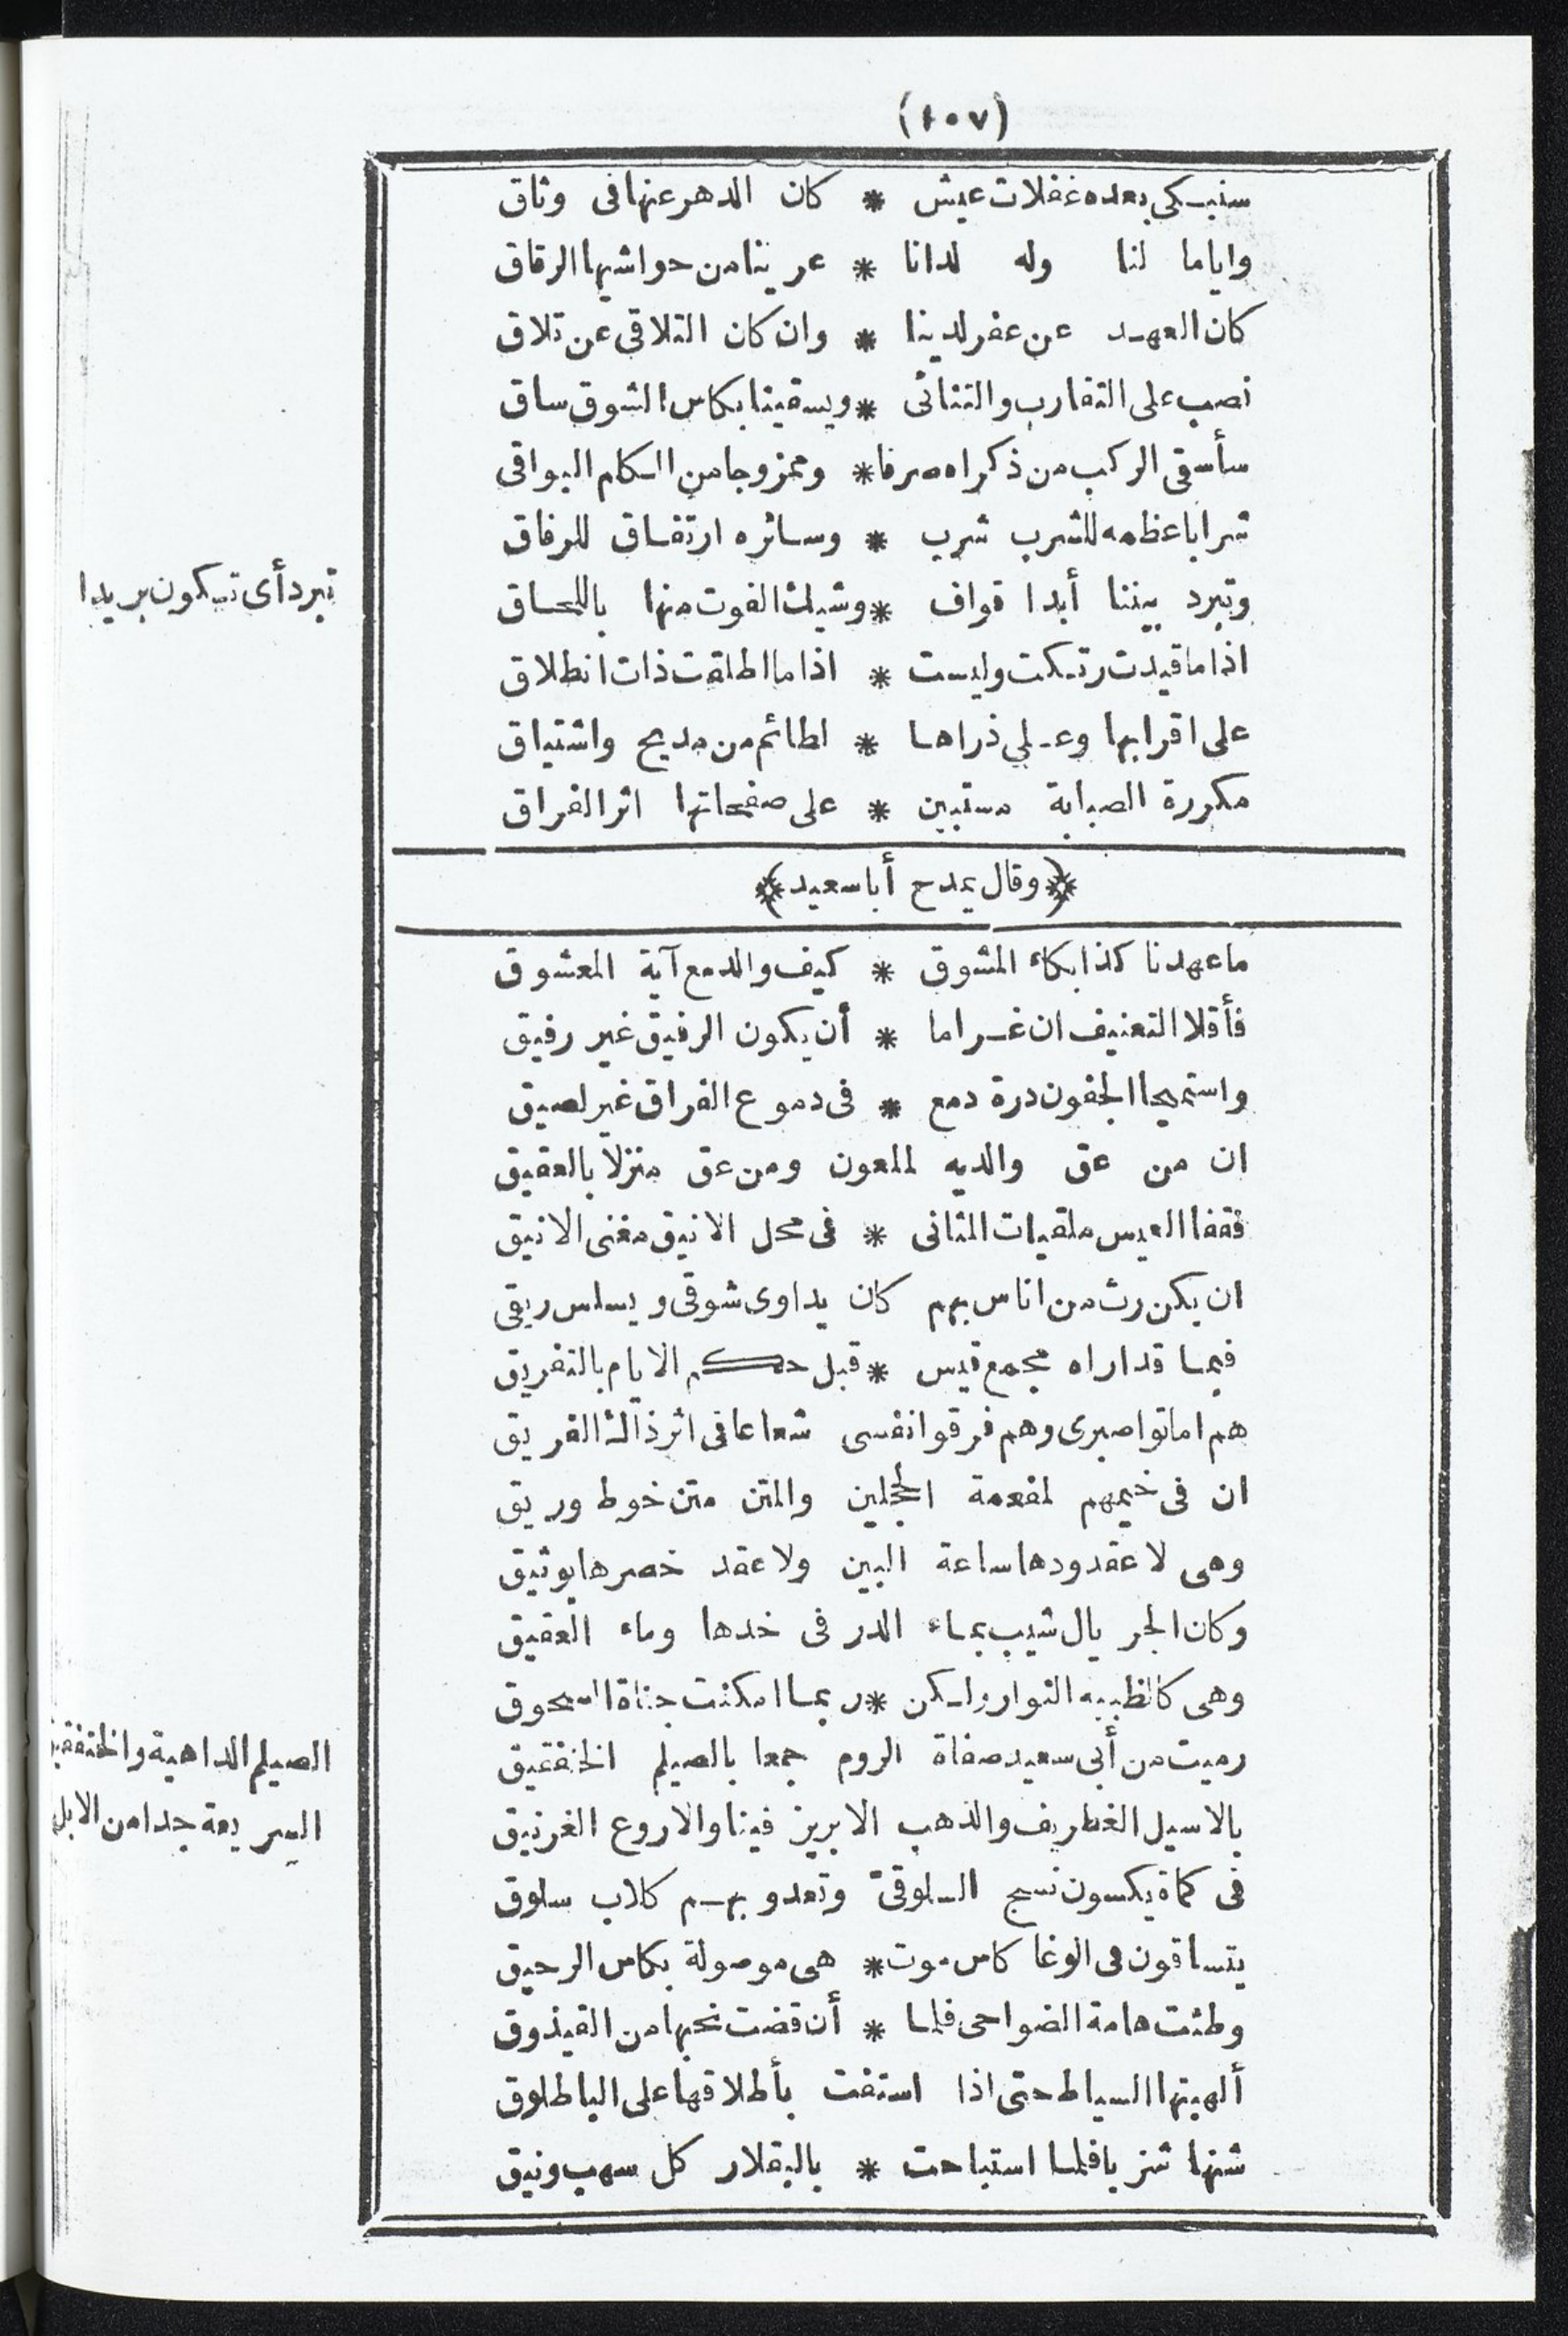 (١٠٧)
سنبكي بعده غفلات عيش * كان الدهر عنها في وثاق
واياما لنا وله لدانا * عرينا من حواشيها الرقاق
كان العهد عن عفر لدينا * وان كان التلاقى عن تلاق
نصب على التقارب والتنائى * ويسقينا بكاس الشوق ساق
سأسقى الركب من ذكراه صرفا * وممزوجا من الكلم البواقى
شرابا عظمه للشرب شرب * وسائره ارتفاق للرفاق
وتبرد بيننا أبدا قواف * وشيك الفوت منها باللحاق
تبرد أى تكون بريدا
اذا ما قيدت رتكت وليست * اذا ما اطلقت ذات انطلاق
على اقرابها وعلى ذراها * لطائم من مديح واشتياق
مكررة الصبابة مستبين * على صفحاتها اثر الفراق
﴿وقال يمدح أبا سعيد﴾
ما عهدنا كذا بكاء المشوق * كيف والدمع آية المعشوق
فأقلا التعنيف ان غراما * أن يكون الرفيق غير رفيق
واستميحا الجفون درة دمع * فى دموع الفراق غير لصيق
ان من عق والديه لملعون ومن عق منزلا بالعقيق
فقفا العيس ملقيات المثانى * فى محل الانيق مغنى الانيق
ان يكن رث من اناس بهم كان يداوى شوقى ويسلس ريقى
فبما قد اراه مجمع قيس * قبل حكم الايام بالتفريق
هم اماتوا صبرى وهم فرقوا نفسى شعاعا فى اثر ذاك الفريق
ان فى خيمهم لمفعمة الحجلين والمتن متن خوط وريق
وهى لا عقد ودها ساعة البين ولا عقد خصرها بوثيق
وكان الجريال شيب بماء الدر فى خدها وماء العقيق
وهى كالظبيه النوار ولكن * ربما امكنت جناة السحوق
رميت من أبى سعيد صفاة الروم جمعا بالصيلم الخنفقيق
الصيلم الداهية والخنفقيق
السريعة جدا من الابل
بالاسيل الغطريف والذهب الابريز فينا والاروع الغرنيق
فى كماة يكسون نسج السلوقىّ وتعدو بهم كلاب سلوق
يتساقون فى الوغا كاس موت * هى موصولة بكاس الرحيق
وطئت هامة الضواحى فلما * أن قضت نحبها من القيذوق
ألهبتها السياط حتى اذا استفت بأطلاقها على الياطلوق
شنها شزبا فلما استباحت * بالبقلار كل سهب ونيق